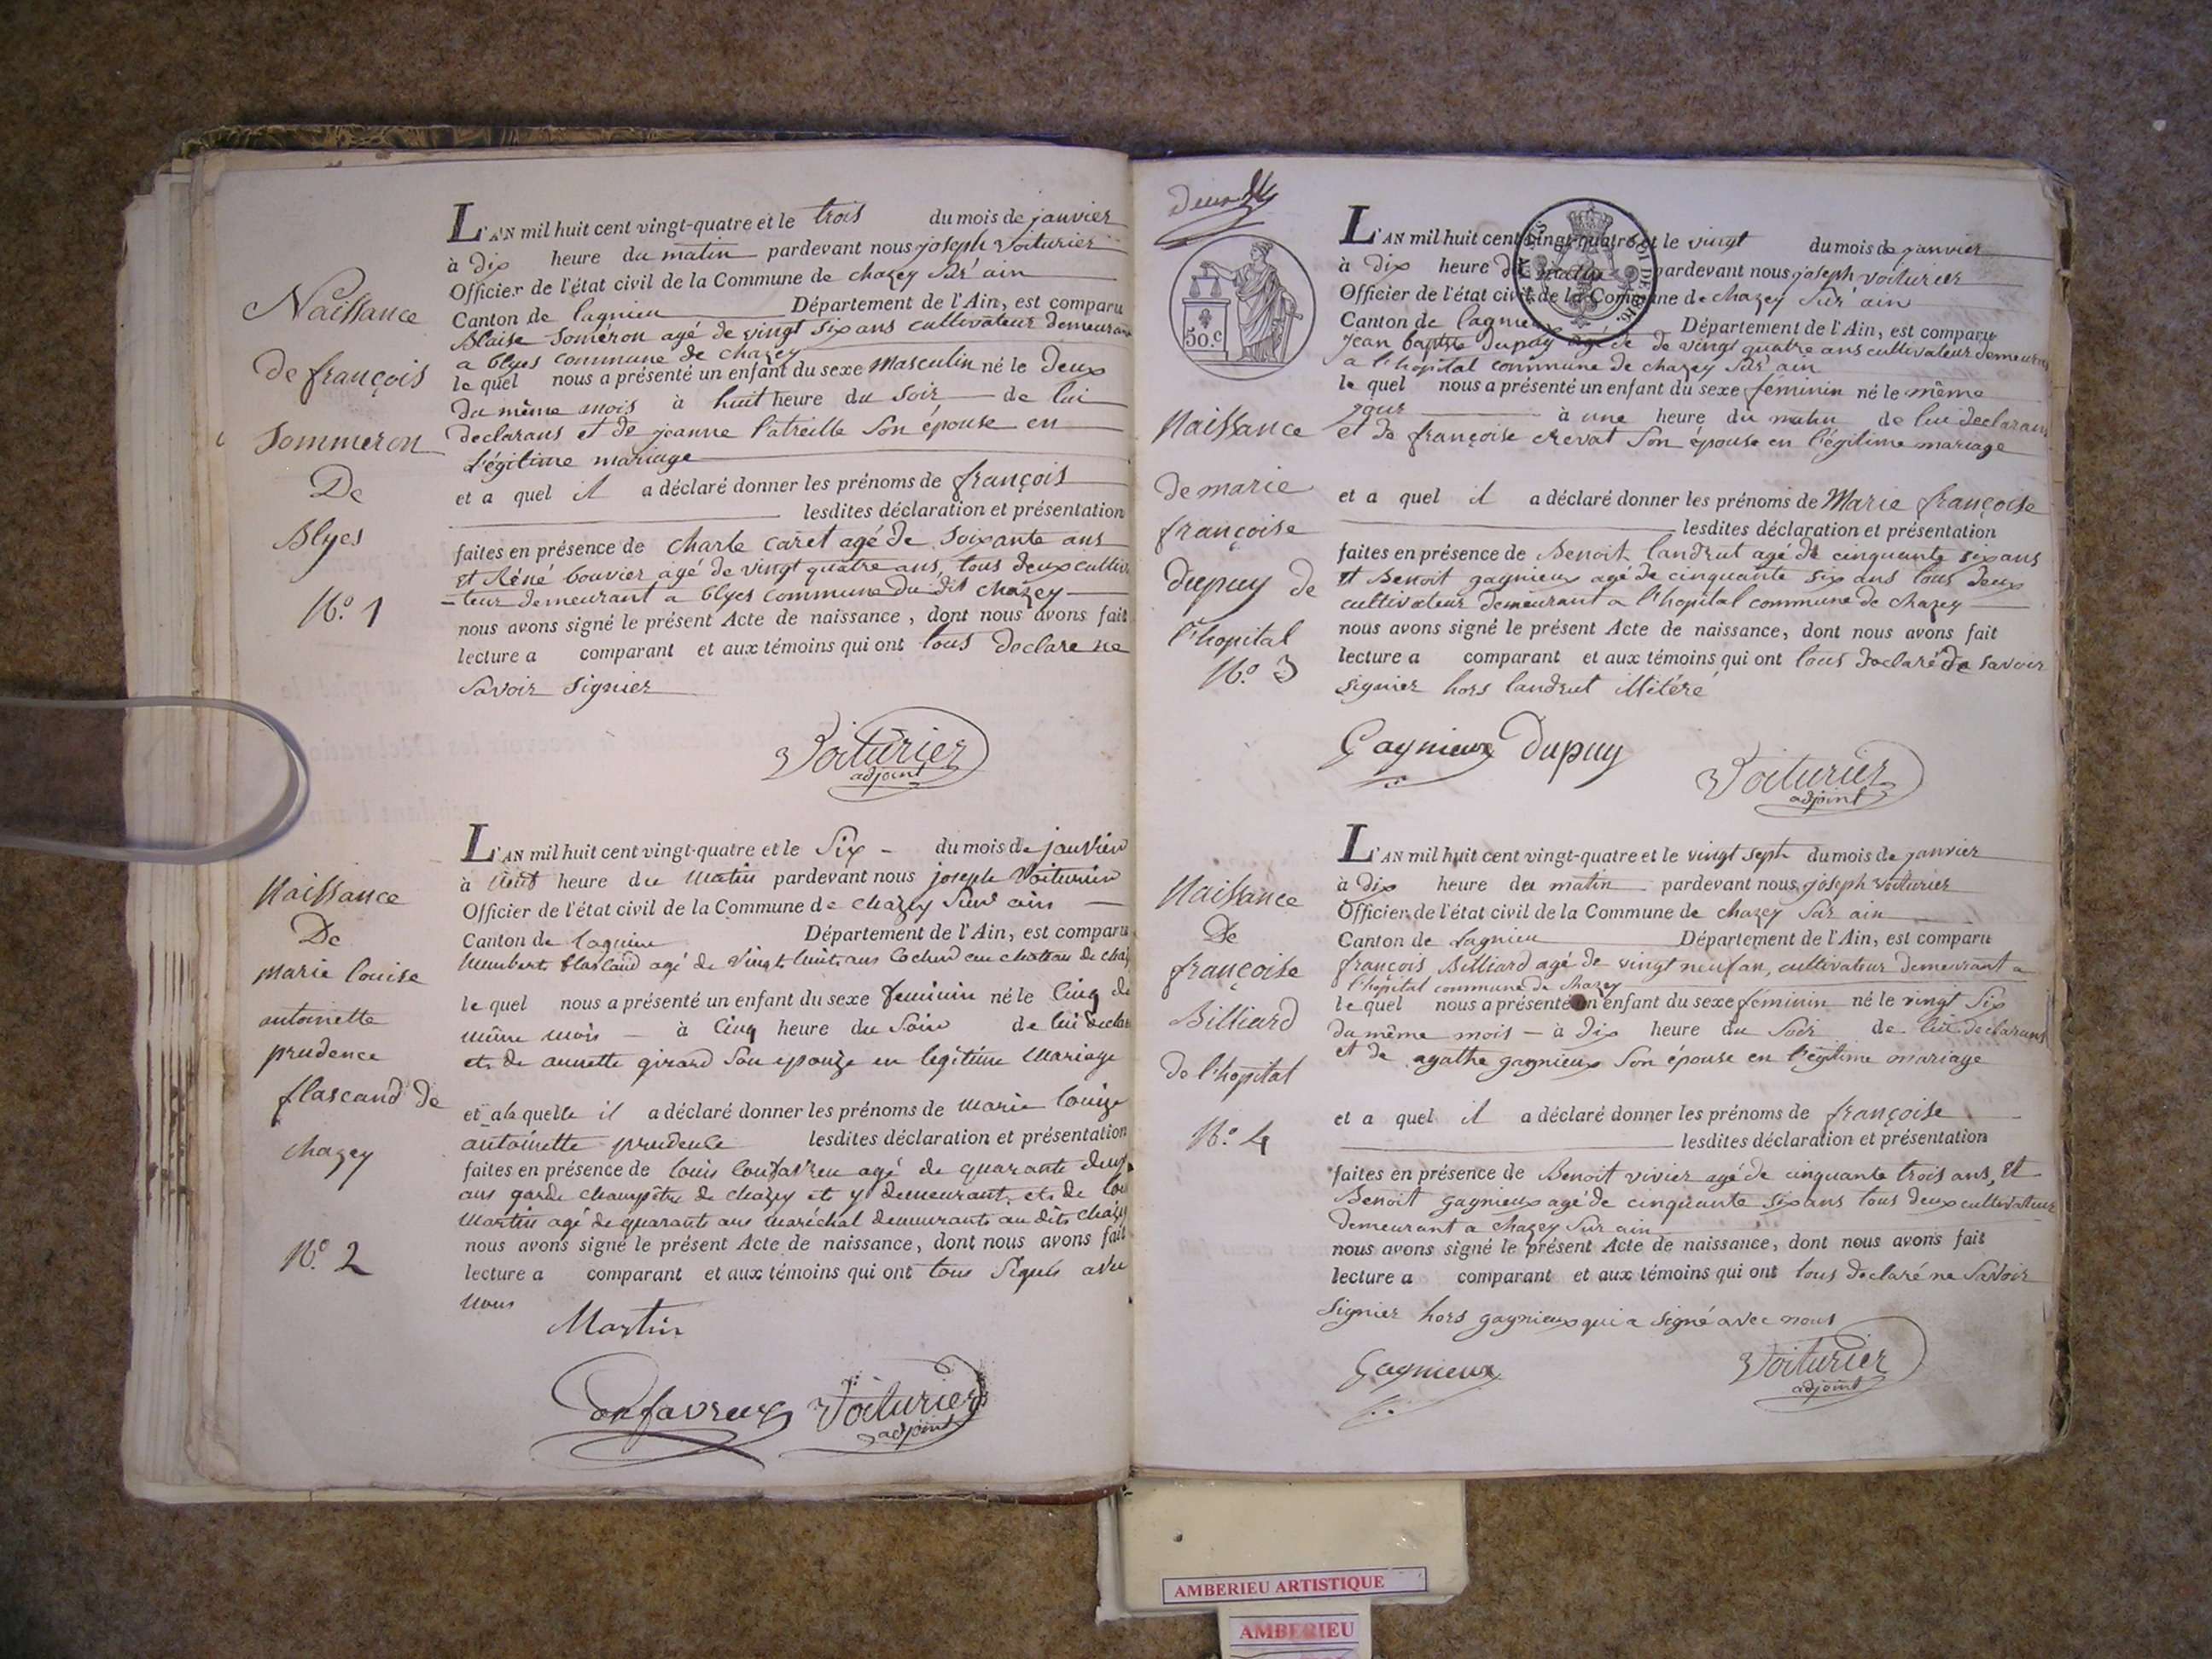 Naissance
de françois
Sommeron
De
Blyes
N.o 1
L'AN mil huit cent vingt-quatre et le trois du mois de janvier
à dix heure du matin pardevant nous joseph voiturier
Officier de l'état civil de la Commune de chazey sur ain
Canton de lagnieu Département de l'Ain, est comparu
Blaise Soméron agé de vingt six ans cultivateur demeurant
a blyes commune de chazey
le quel nous a présenté un enfant du sexe Masculin né le deux
du même mois à huit heure du soir de lui
declarans et de jeanne latreille son épouse en
légitime mariage
et a quel il a déclaré donner les prénoms de françois
lesdites déclaration et présentation
faites en présence de charle caret agé de soixante ans
et Réné bouvier agé de vingt quatre ans, tous deux cultiva
-teur demeurant a blyes commune du dit chazey
nous avons signé le présent Acte de naissance, dont nous avons fait
lecture a comparant et aux témoins qui ont tous declare ne
savoir signier
Voiturier
adjoint
Naissance
De
marie louise
antoinette
prudence
flascand de
chazey
N.o 2
L'AN mil huit cent vingt-quatre et le Six du mois de janvier
à neuf heure du matin pardevant nous joseph Voiturier
Officier de l'état civil de la Commune de chazey sur ain
Canton de lagnieu Département de l'Ain, est comparu
humbert flascand agé de vingt huit ans cocher au chateau de chaz
le quel nous a présenté un enfant du sexe feminin né le cinq du
même mois à cinq heure du soir de lui declar
et de annette girard son epouze en legitime mariage
et a la quelle il a déclaré donner les prénoms de marie louize
antoinette prudence lesdites déclaration et présentation
faites en présence de louis agé de quarante deux
ans garde champêtre de chazey et y demeurant et de
martin agé de quarante ans maréchal demeurant au dit chazey
nous avons signé le présent Acte de naissance, dont nous avons fait
lecture a comparant et aux témoins qui ont tous signés avec
nous
Martin
defavreux Voiturier
adjoint
deux
50.c
Naissance
de marie
françoise
dupuy de
l'hopital
N.o 3
L'AN mil huit cent vingt-quatre et le vingt du mois de janvier
à dix heure du matin pardevant nous joseph voiturier
Officier de l'état civil de la Commune de chazey sur ain
Canton de lagnieu Département de l'Ain, est comparu
jean baptiste dupuy agé de de vingt quatre ans cultivateur demeurant
a l'hopital commune de chazey sur ain
le quel nous a présenté un enfant du sexe féminin né le même
jour à une heure du matin de lui declarans
et de françoise crevat son épouse en légitime mariage
et a quel il a déclaré donner les prénoms de Marie françoise
lesdites déclaration et présentation
faites en présence de Benoit landrut agé de cinquante six ans
et Benoit gagnieux agé de cinquante six ans tous deux
cultivateur demeurant a l'hopital commune de chazey
nous avons signé le présent Acte de naissance, dont nous avons fait
lecture a comparant et aux témoins qui ont tous declaré de savoir
signier hors landrut illitéré
Gagnieux Dupuy
Voiturier
adjoint
Naissance
De
françoise
Billiard
de l'hopital
N.o 4
L'AN mil huit cent vingt-quatre et le vingt sept du mois de janvier
à dix heure du matin pardevant nous joseph voiturier
Officier de l'état civil de la Commune de chazey sur ain
Canton de Lagnieu Département de l'Ain, est comparu
françois Billiard agé de vingt neuf an, cultivateur demeurant a
l'hopital commune de chazey
le quel nous a présenté un enfant du sexe féminin né le vingt six
du même mois à dix heure du soir de lui declarans
et de agathe gagnieux son épouse en légitime mariage
et a quel il a déclaré donner les prénoms de françoise
lesdites déclaration et présentation
faites en présence de Benoit vivier agé de cinquante trois ans, et
Benoit gagnieux agé de cinquante six ans tous deux cultivateur
demeurant a chazey sur ain
nous avons signé le présent Acte de naissance, dont nous avons fait
lecture a comparant et aux témoins qui ont tous declaré ne savoir
signier hors gagnieux qui a signé avec nous
Gagnieux
Voiturier
adjoint
AMBERIEU ARTISTIQUE
AMBERIEU